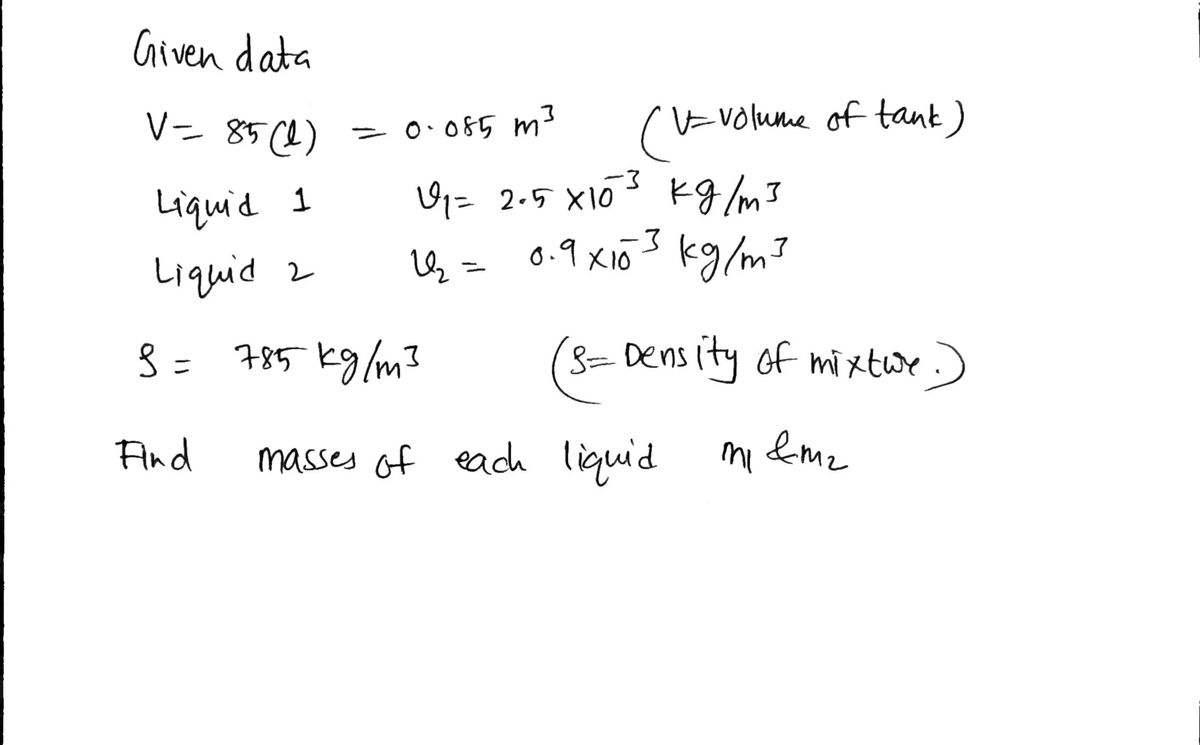 Given data
V = 85(l) = 0.085 m³ (V= volume of tank)
Liquid 1 υ₁= 2.5 ×10⁻³ kg/m³
Liquid 2 υ₂ = 0.9 ×10⁻³ kg/m³
ρ = 785 kg/m³ (ρ= Density of mixture.)
Find masses of each liquid m₁ & m₂